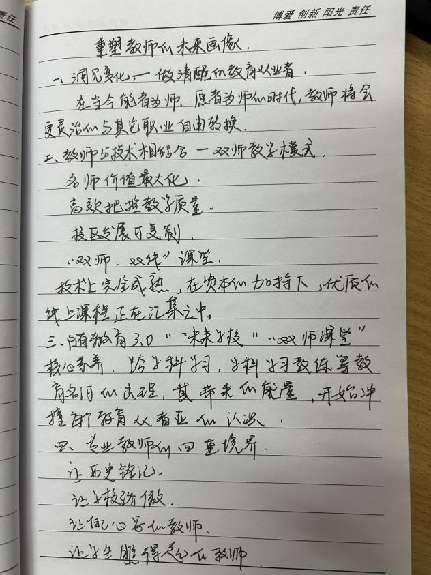 责任
博爱 创新 阳光 责任
重塑教师的未来画像.
一、洞见变化,一做清醒的教育从业者.
在当今能者为师、愿者为师的时代,教师将会
更灵活的与其它职业自由转换.
二、教师与技术相结合一双师教学模式.
名师价值最大化.
高效把控教学质量.
校区发展可复制.
“双师、双线”课堂.
技术上完全成熟,在资本的加持下,优质的
线上课程正在汇集之中.
三、随着教育3.0“未来学校”“双师课堂”
核心素养,跨学科学习,学科学习教练等教
育名词的出现,其带来的能量,开始冲
撞着教育从者业的认知.
四、专业教师的四重境界.
让历史铭记.
让学校骄傲.
让同学的教师.
让学生觉得是个教师